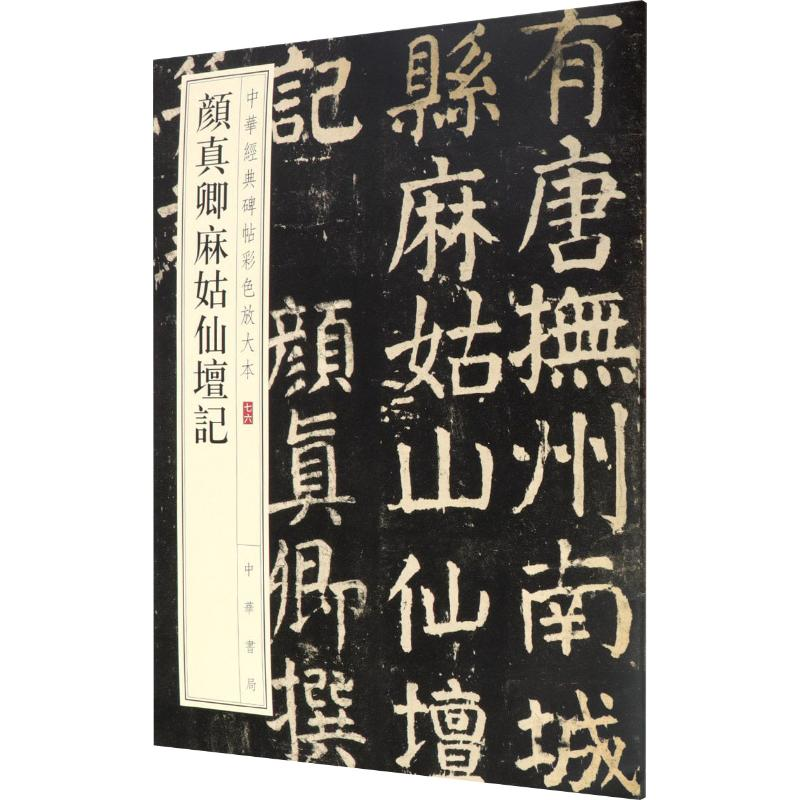 有唐撫州南城
縣麻姑山仙壇
記 顔眞卿撰
中華經典碑帖彩色放大本 七六
中華書局
顔真卿麻姑仙壇記